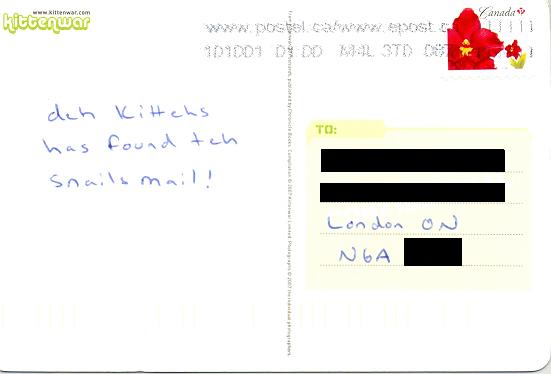 www.kittenwar.com
kittenwar
www.postel.ca/www.epost.c
101001 D1 DD M4L 3TD
Canada P
deh Kittehs
has found teh
snails mail!
TO:
London ON
N6A